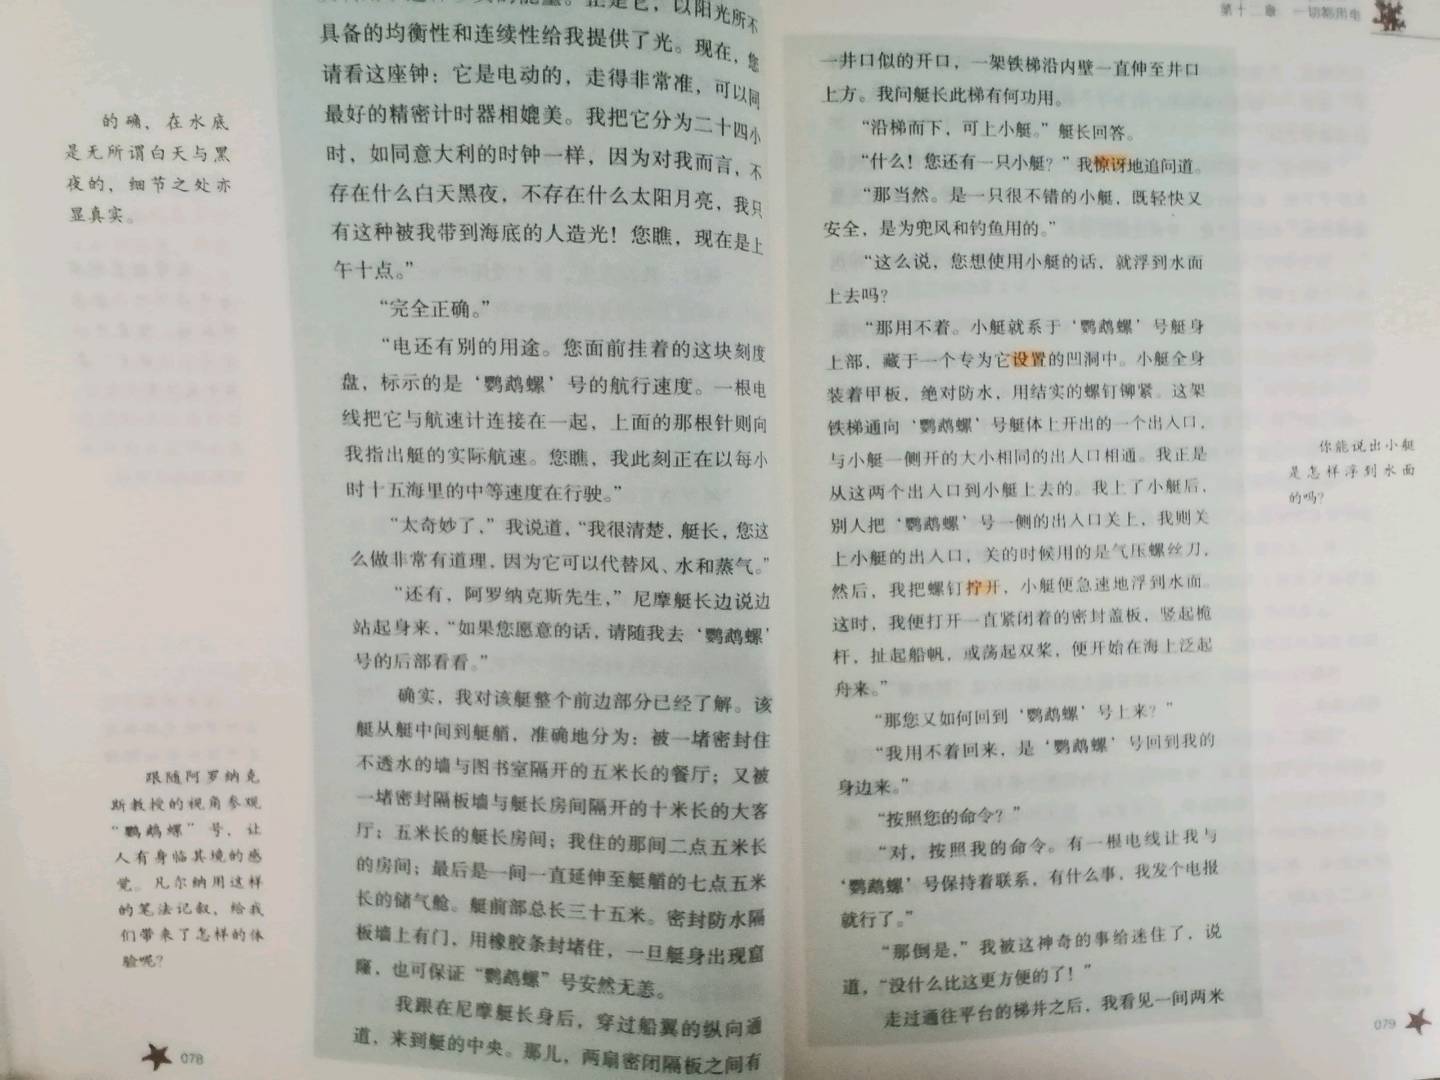 具备的均衡性和连续性给我提供了光。现在，您
请看这座钟：它是电动的，走得非常准，可以同
最好的精密计时器相媲美。我把它分为二十四小
时，如同意大利的时钟一样，因为对我而言，不
存在什么白天黑夜，不存在什么太阳月亮，我只
有这种被我带到海底的人造光！您瞧，现在是上
午十点。”
“完全正确。”
“电还有别的用途。您面前挂着的这块刻度
盘，标示的是‘鹦鹉螺’号的航行速度。一根电
线把它与航速计连接在一起，上面的那根针则向
我指出艇的实际航速。您瞧，我此刻正在以每小
时十五海里的中等速度在行驶。”
“太奇妙了，”我说道，“我很清楚，艇长，您这
么做非常有道理，因为它可以代替风、水和蒸气。”
“还有，阿罗纳克斯先生，”尼摩艇长边说边
站起身来，“如果您愿意的话，请随我去‘鹦鹉螺’
号的后部看看。”
确实，我对该艇整个前边部分已经了解。该
艇从艇中间到艇艏，准确地分为：被一堵密封住
不透水的墙与图书室隔开的五米长的餐厅；又被
一堵密封隔板墙与艇长房间隔开的十米长的大客
厅；五米长的艇长房间；我住的那间二点五米长
的房间；最后是一间一直延伸至艇艏的七点五米
长的储气舱。艇前部总长三十五米。密封防水隔
板墙上有门，用橡胶条封堵住，一旦艇身出现窟
窿，也可保证“鹦鹉螺”号安然无恙。
我跟在尼摩艇长身后，穿过船翼的纵向通
道，来到艇的中央。那儿，两扇密闭隔板之间有
的确，在水底
是无所谓白天与黑
夜的，细节之处亦
显真实。
跟随阿罗纳克
斯教授的视角参观
“鹦鹉螺”号，让
人有身临其境的感
觉。凡尔纳用这样
的笔法记叙，给我
们带来了怎样的体
验呢？
078
第十二章 一切都用电
一井口似的开口，一架铁梯沿内壁一直伸至井口
上方。我问艇长此梯有何功用。
“沿梯而下，可上小艇。”艇长回答。
“什么！您还有一只小艇？”我惊讶地追问道。
“那当然。是一只很不错的小艇，既轻快又
安全，是为兜风和钓鱼用的。”
“这么说，您想使用小艇的话，就浮到水面
上去吗？
“那用不着。小艇就系于‘鹦鹉螺’号艇身
上部，藏于一个专为它设置的凹洞中。小艇全身
装着甲板，绝对防水，用结实的螺钉铆紧。这架
铁梯通向‘鹦鹉螺’号艇体上开出的一个出入口，
与小艇一侧开的大小相同的出人口相通。我正是
从这两个出入口到小艇上去的。我上了小艇后，
别人把‘鹦鹉螺’号一侧的出入口关上，我则关
上小艇的出入口，关的时候用的是气压螺丝刀，
然后，我把螺钉拧开，小艇便急速地浮到水面。
这时，我便打开一直紧闭着的密封盖板，竖起桅
杆，扯起船帆，或荡起双桨，便开始在海上泛起
舟来。”
“那您又如何回到‘鹦鹉螺’号上来？”
“我用不着回来，是‘鹦鹉螺’号回到我的
身边来。”
“按照您的命令？”
“对，按照我的命令。有一根电线让我与
‘鹦鹉螺’号保持着联系，有什么事，我发个电报
就行了。”
“那倒是，”我被这神奇的事给迷住了，说
道，“没什么比这更方便的了！”
走过通往平台的梯井之后，我看见一间两米
你能说出小艇
是怎样浮到水面
的吗？
079